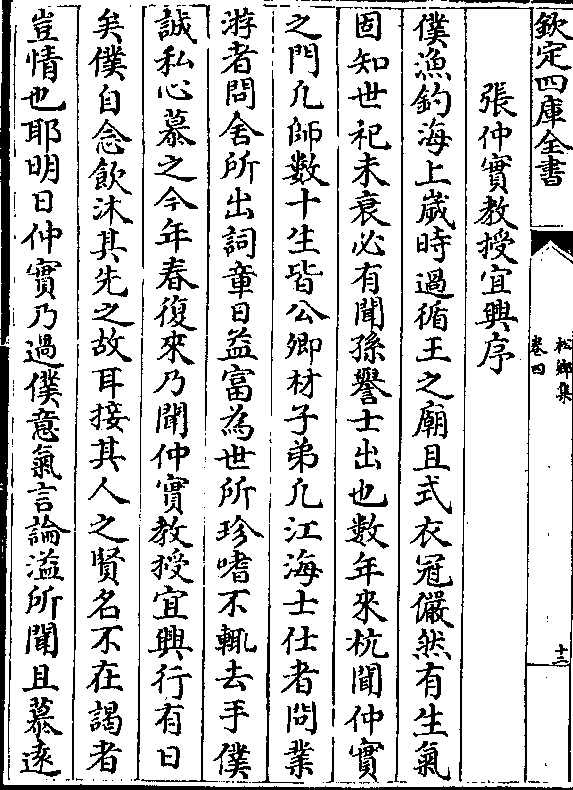 欽定四庫全書
松鄉集
卷四
十三
張仲實教授宜興序
僕漁釣海上歲時過循王之廟且式衣冠儼然有生氣
固知世祀未衰必有聞孫譽士出也數年來杭聞仲實
之門凡師數十生皆公卿材子弟凡江海士仕者問業
游者問舍所出詞章日益富為世所珍嗜不輒去手僕
誠私心慕之今年春復來乃聞仲實教授宜興行有日
矣僕自念飲沐其先之故耳接其人之賢名不在謁者
豈情也耶明日仲實乃過僕意氣言論溢所聞且慕遠